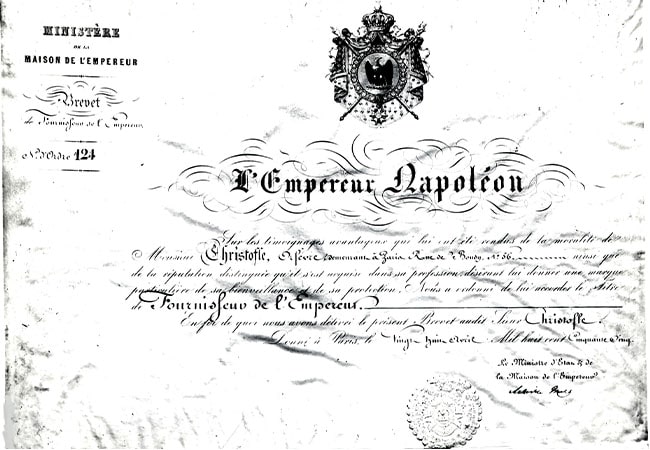 MINISTÈRE
DE LA
MAISON DE L'EMPEREUR
Brevet
de Fournisseur de l'Empereur
N.º d'Ordre 124
L'Empereur Napoléon
Sur les témoignages avantageux qui lui ont été rendus de la moralité de
Monsieur Christofle, Orfèvre, demeurant à Paris, Rue de Bondy, Nº 56. ainsi que
de la réputation distinguée qu'il s'est acquise dans sa profession désirant lui donner une marque
particulière de sa bienveillance et de sa protection, Nous a ordonné de lui accorder le titre
de Fournisseur de l'Empereur.
En foi de quoi nous avons délivré le présent Brevet audit Sieur Christofle.
Donné à Paris, le Vingt Mil huit cent Cinquante
Le Ministre d'Etat & de
la Maison de l'Empereur